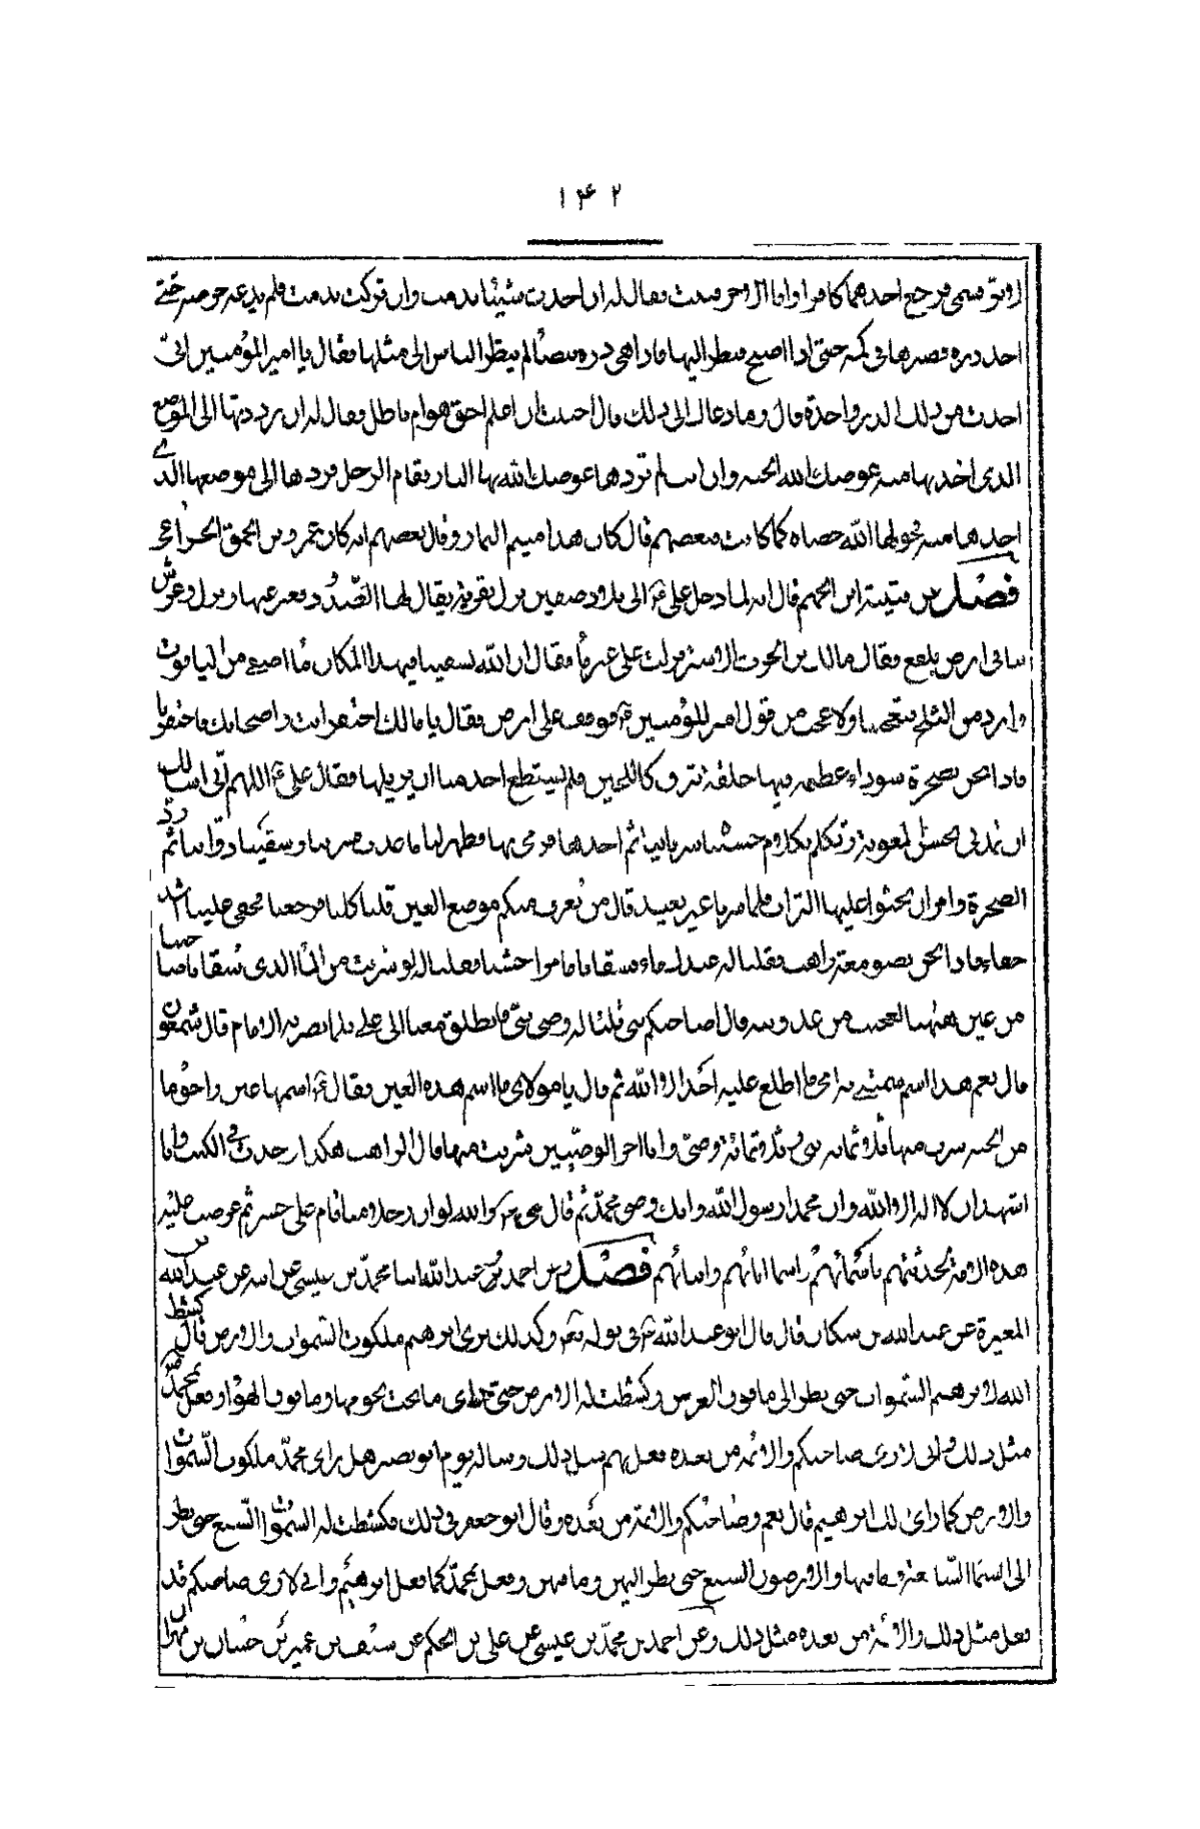 ١٤٢
احدهما كافرا وانا فقال له ان اخذت شيئا ندمت وان تركت ندمت فلم يدعه حرصه حتى
اخذ دره فصرها في كمه حتى اذا اصبح نظر اليها فاذا هي دره بيضا لم ينظر الناس الى مثلها فقال يا امير المؤمنين انى
اخذت من ذلك الدر واحدة قال وما دعاك الى ذلك قال احببت ان اعلم احق هو ام باطل فقال له ان رددتها الى الموضع
الذى اخذتها منه عوضك الله الجنه وان لم تردها عوضك الله بها النار فقام الرجل فردها الى موضعها الذى
اخذها منه فحولها الله حصاه كما كانت فبعضهم قال كان هذا ميثم التمار وقال بعضهم انه كان عمرو بن الحمق الخزاعى
فصل قال انه لما دخل على الى بلاد صفين نزل بقرية يقال لها
ارض بلقع فقال مالك بن الحرث الاشتر نزلت على غير ما فقال ان الله يسقينا فى هذا المكان ما اصفى من الياقوت
وابرد من الثلج فتعجبنا ولا عجب من قول امير المؤمنين فوقف على ارض فقال يا مالك احتفر انت واصحابك فاحتفرنا
فاذا نحن بصخرة سوداء عظيمه فيها حلقة تبرق كاللجين فلم يستطع احد منا ان يزيلها فقال على اللهم انى اسالك
ان تمدنى بحسن المعونة وتكلم بكلام ثم اخذها فرمى بها فظهر لنا ماء عذب فشربنا وسقينا دوابنا ثم رد
الصخرة وامر ان يحثوا عليها التراب فلما سرنا غير بعيد قال من يعرف منكم موضع العين قلنا كلنا فرجعنا فخفى علينا
فاذا نحن بصومعة راهب فقلنا له عندك ماء فسقانا ماء مرا خشنا فقلنا له لو شربت من الماء الذى سقانا صاحبنا
من عين ههنا قال صاحبكم نبى قلنا له وصى نبى فانطلق معنا الى على فلما بصر به الامام قال شمعون
قال نعم هذا اسم سمتنى به امى ما اطلع عليه احد الا الله ثم قال يا مولاى ما اسم هذه العين فقال اسمها عين راحوما
من الجنه شرب منها ثلاثمائه نبى وثلاثمائة وصى وانا اخر الوصيين شربت منها قال الراهب هكذا وجدت فى الكتب وانا
اشهد ان لا اله الا الله وان محمدا رسول الله وانك وصى محمد ثم قال
هذه الامة يحدثهم باسمائهم واسما ابائهم وامهاتهم فصل وعن احمد بن محمد بن عيسى عن ابيه عن عبد الله بن
المغيرة عن عبد الله بن مسكان قال قال ابو عبد الله فى قوله وكذلك نرى ابرهيم ملكوت السموات والارض قال كشط
الله لابرهيم السموات حتى نظر الى ما فوق العرش وكشطت له الارض حتى راى ما تحت نجومها وما فوق الهواء وفعل بمحمد
مثل ذلك وانى لارى صاحبكم والائمه من بعده فعل بهم مثل ذلك وساله يوم ابو بصير هل راى محمد ملكوت السموات
والارض كما راى ذلك ابرهيم قال نعم وصاحبكم والائمة من بعده وقال ابو جعفر فى ذلك فكشطت له السموات السبع حتى نظر
الى السماء السابعة وما فيها والارضون السبع حتى نظر اليهن وما فيهن وفعل بمحمد كما فعل بابرهيم وانى لارى صاحبكم قد
فعل مثل ذلك والائمة من بعده مثل ذلك وعن احمد بن محمد بن عيسى عن على بن الحكم عن سيف بن عميره عن حسان بن مهران